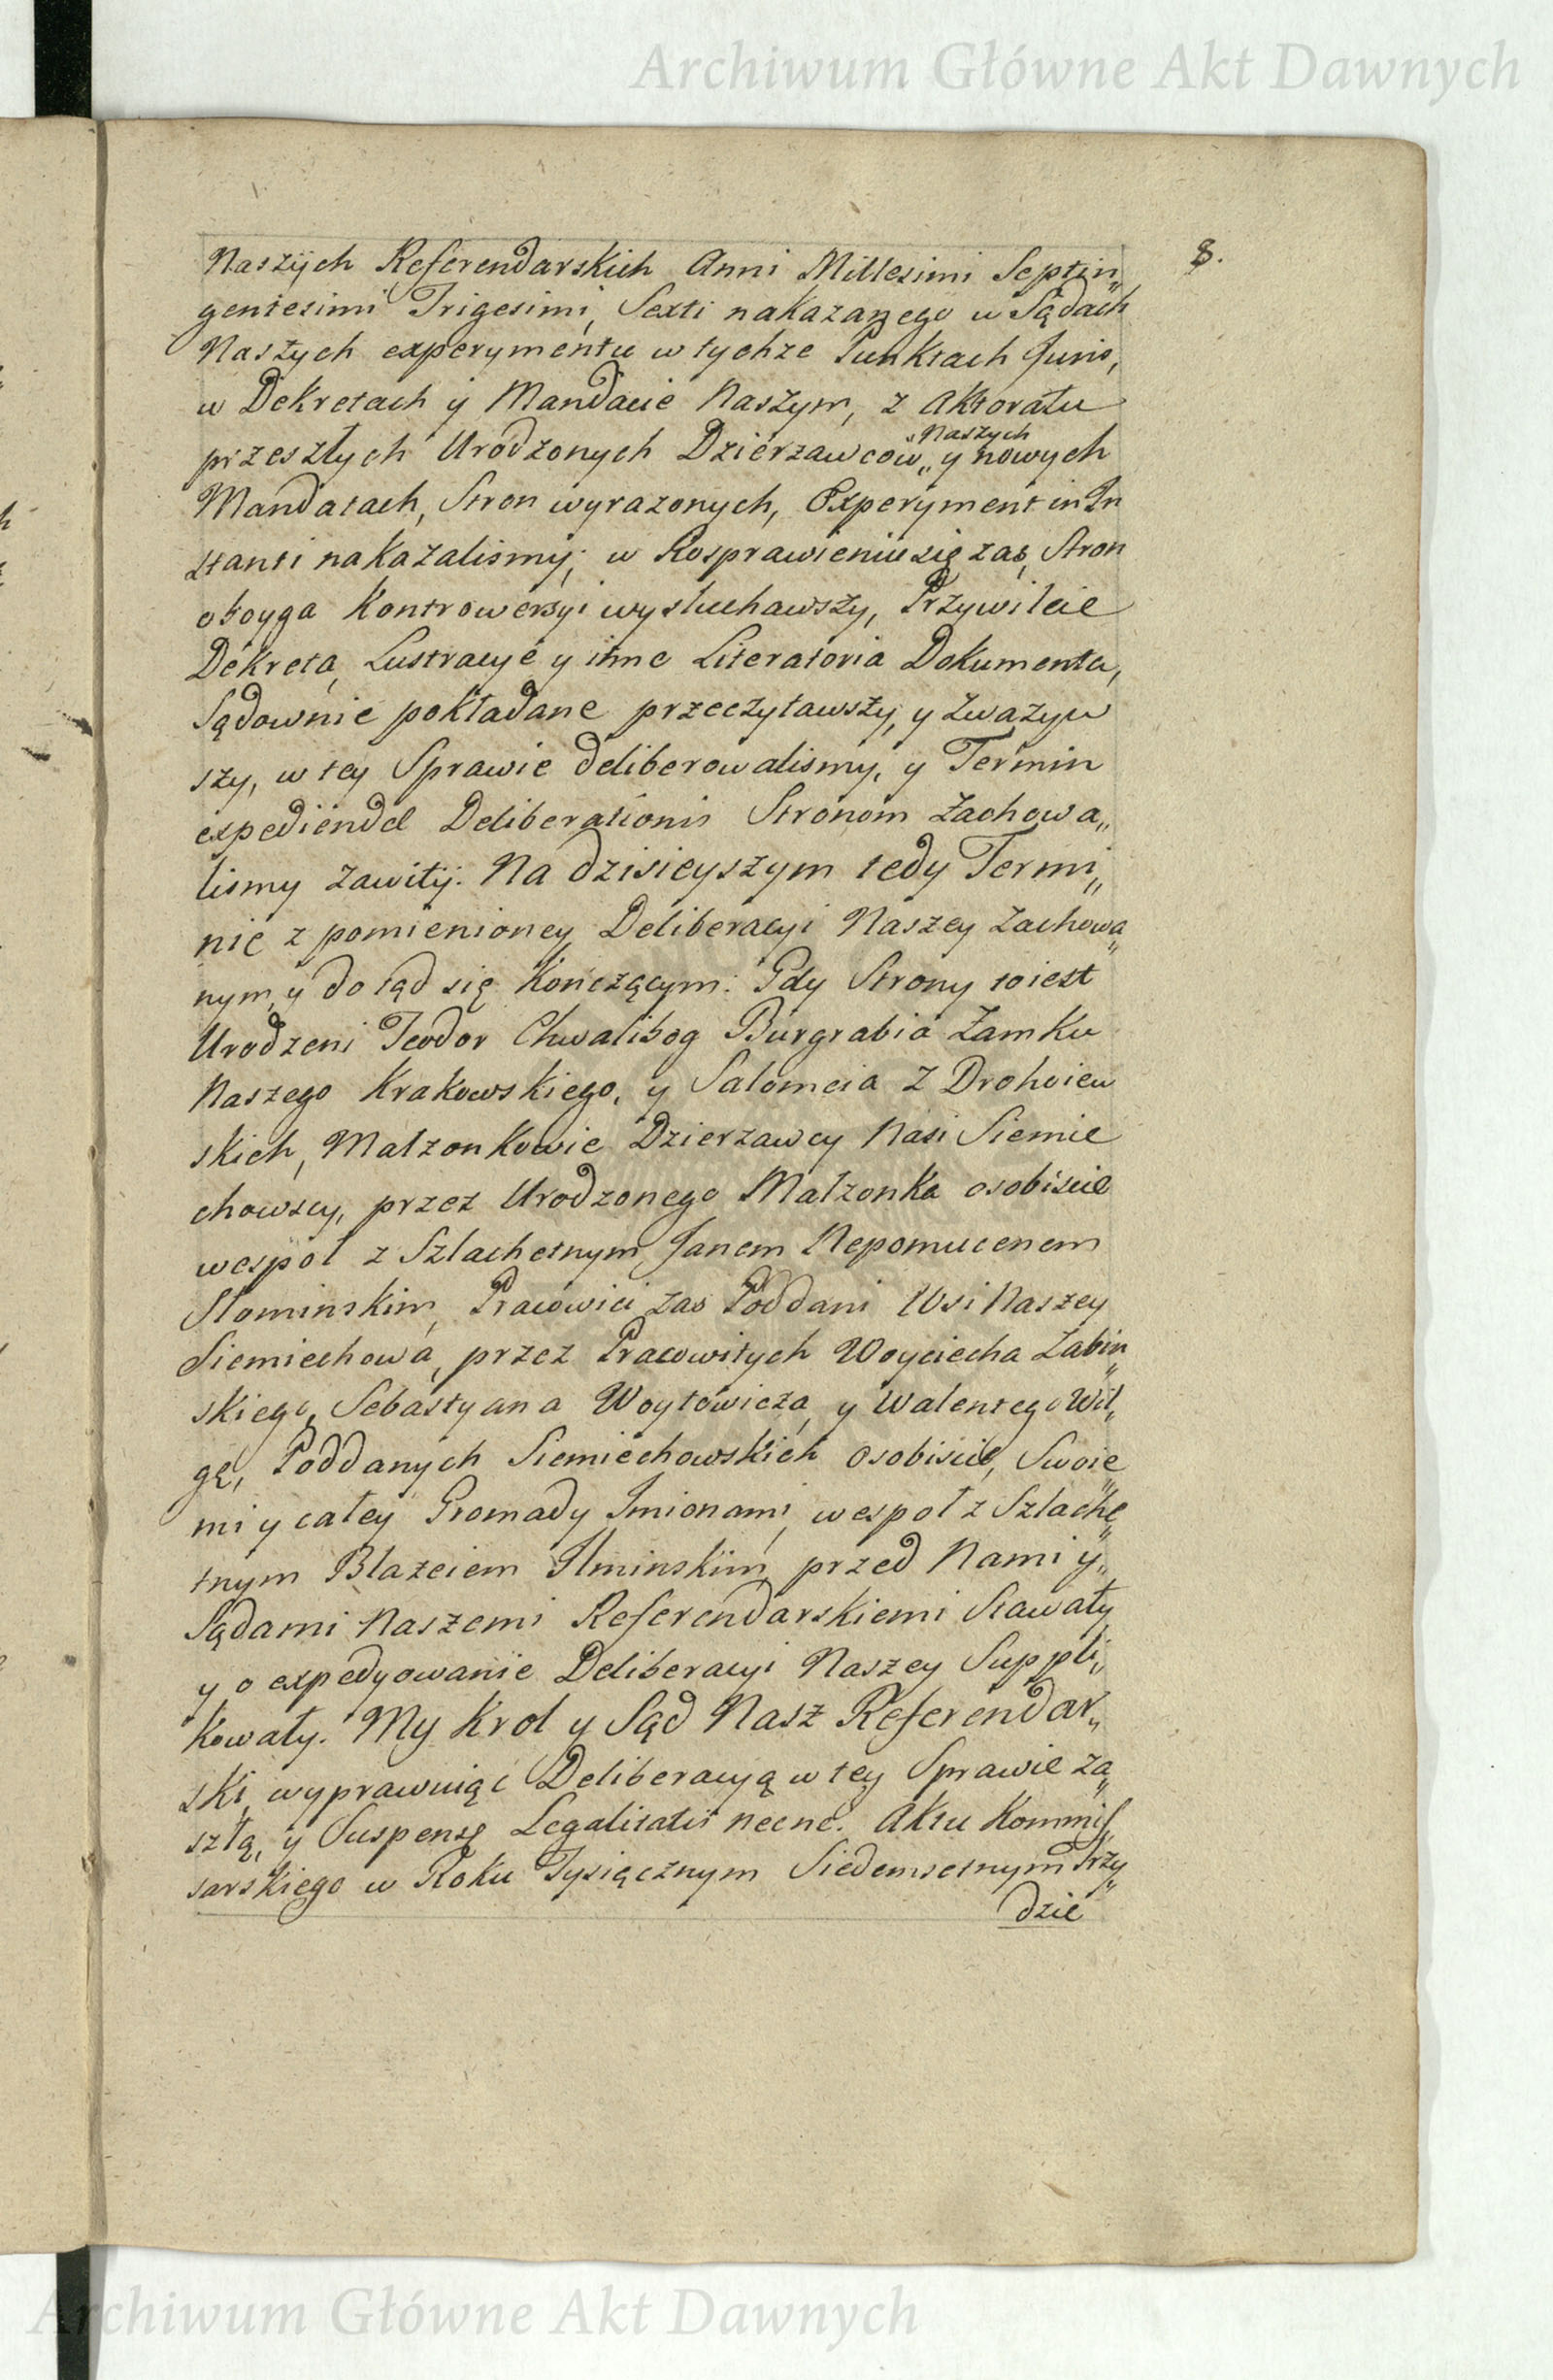 Archiwum Główne Akt Dawnych
8.
Naszych Referendarskich Anni Millesimi Septin„
gentesimi Trigesimi, Sexti nakazanego w Sądach
Naszych experymentu w tychze Punktach Juris,
w Dekretach y Mandacie Naszym, z Aktoratu
przeszłych Urodzonych Dzierzawcow„ Naszych y nowych
Mandatach, Stron wyrazonych, Experyment in In
stanti nakazalismy; w Rosprawieniu się zas, Stron
oboyga Kontrowersyi wysłuchawszy, Przywileie
Dekreta, Lustracye y inne Literatoria Dokumenta,
Sądownie pokładane przeczytawszy, y zwazyw
szy, w tey Sprawie deliberowalismy, y Termin
expediendæ Deliberationis Stronom zachowa„
lismy zawity. Na dzisieyszym tedy Termi„
nie z pomienioney Deliberacyi Naszey zachowa„
nym, y dotąd się Konczącym: Gdy Strony to iest
Urodzeni Teodor Chwalibog Burgrabia Zamku
Naszego Krakowskiego, y Salomeia z Drohoiew
skich, Małzonkowie Dzierzawcy Nasi Siemie
chowscy, przez Urodzonego Małzonka osobiscie
wespoł z Szlachetnym Janem Nepomucenem
Słominskim, Pracowici zas Poddani Wsi Naszey
Siemiechowa, przez Pracowitych Woyciecha Zabin„
skiego, Sebastyana Woytowicza, y Walentego Wil„
gę, Poddanych Siemiechowskich osobiscie, Swoie„
mi y całey Gromady Imionami, wespoł z Szlache„
tnym Błazeiem Ilminskim, przed Nami y„
Sądami Naszemi Referendarskiemi Stawały
y o expedyowanie Deliberacyi Naszey Suppli„
kowały. My Krol y Sąd Nasz Referendar„
ski, wyprawuiąc Deliberacyą w tey Sprawie za„
szłą, y Suspensę Legalitatis necne. Aktu Kommis„
sarskiego w Roku Tysiącznym Siedemsetnym Trzy„
dzie
Archiwum Główne Akt Dawnych